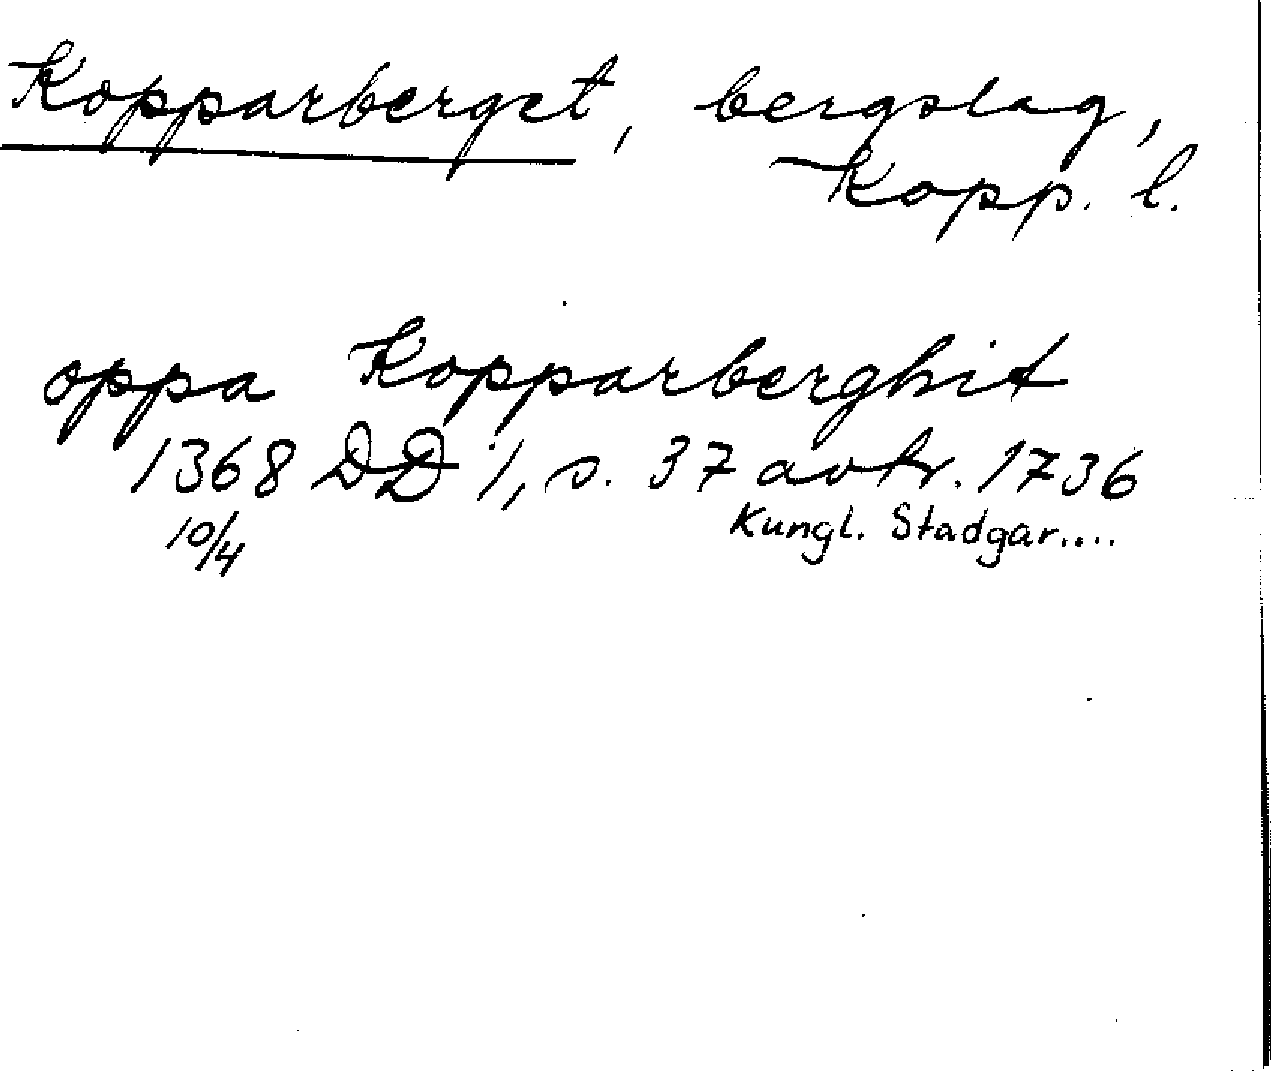 Kopparberget, bergslag,
Kopp. l.
oppa Kopparberghit
1368 DD 1, s. 37 avtr. 1736
10/4 Kungl. Stadgar....